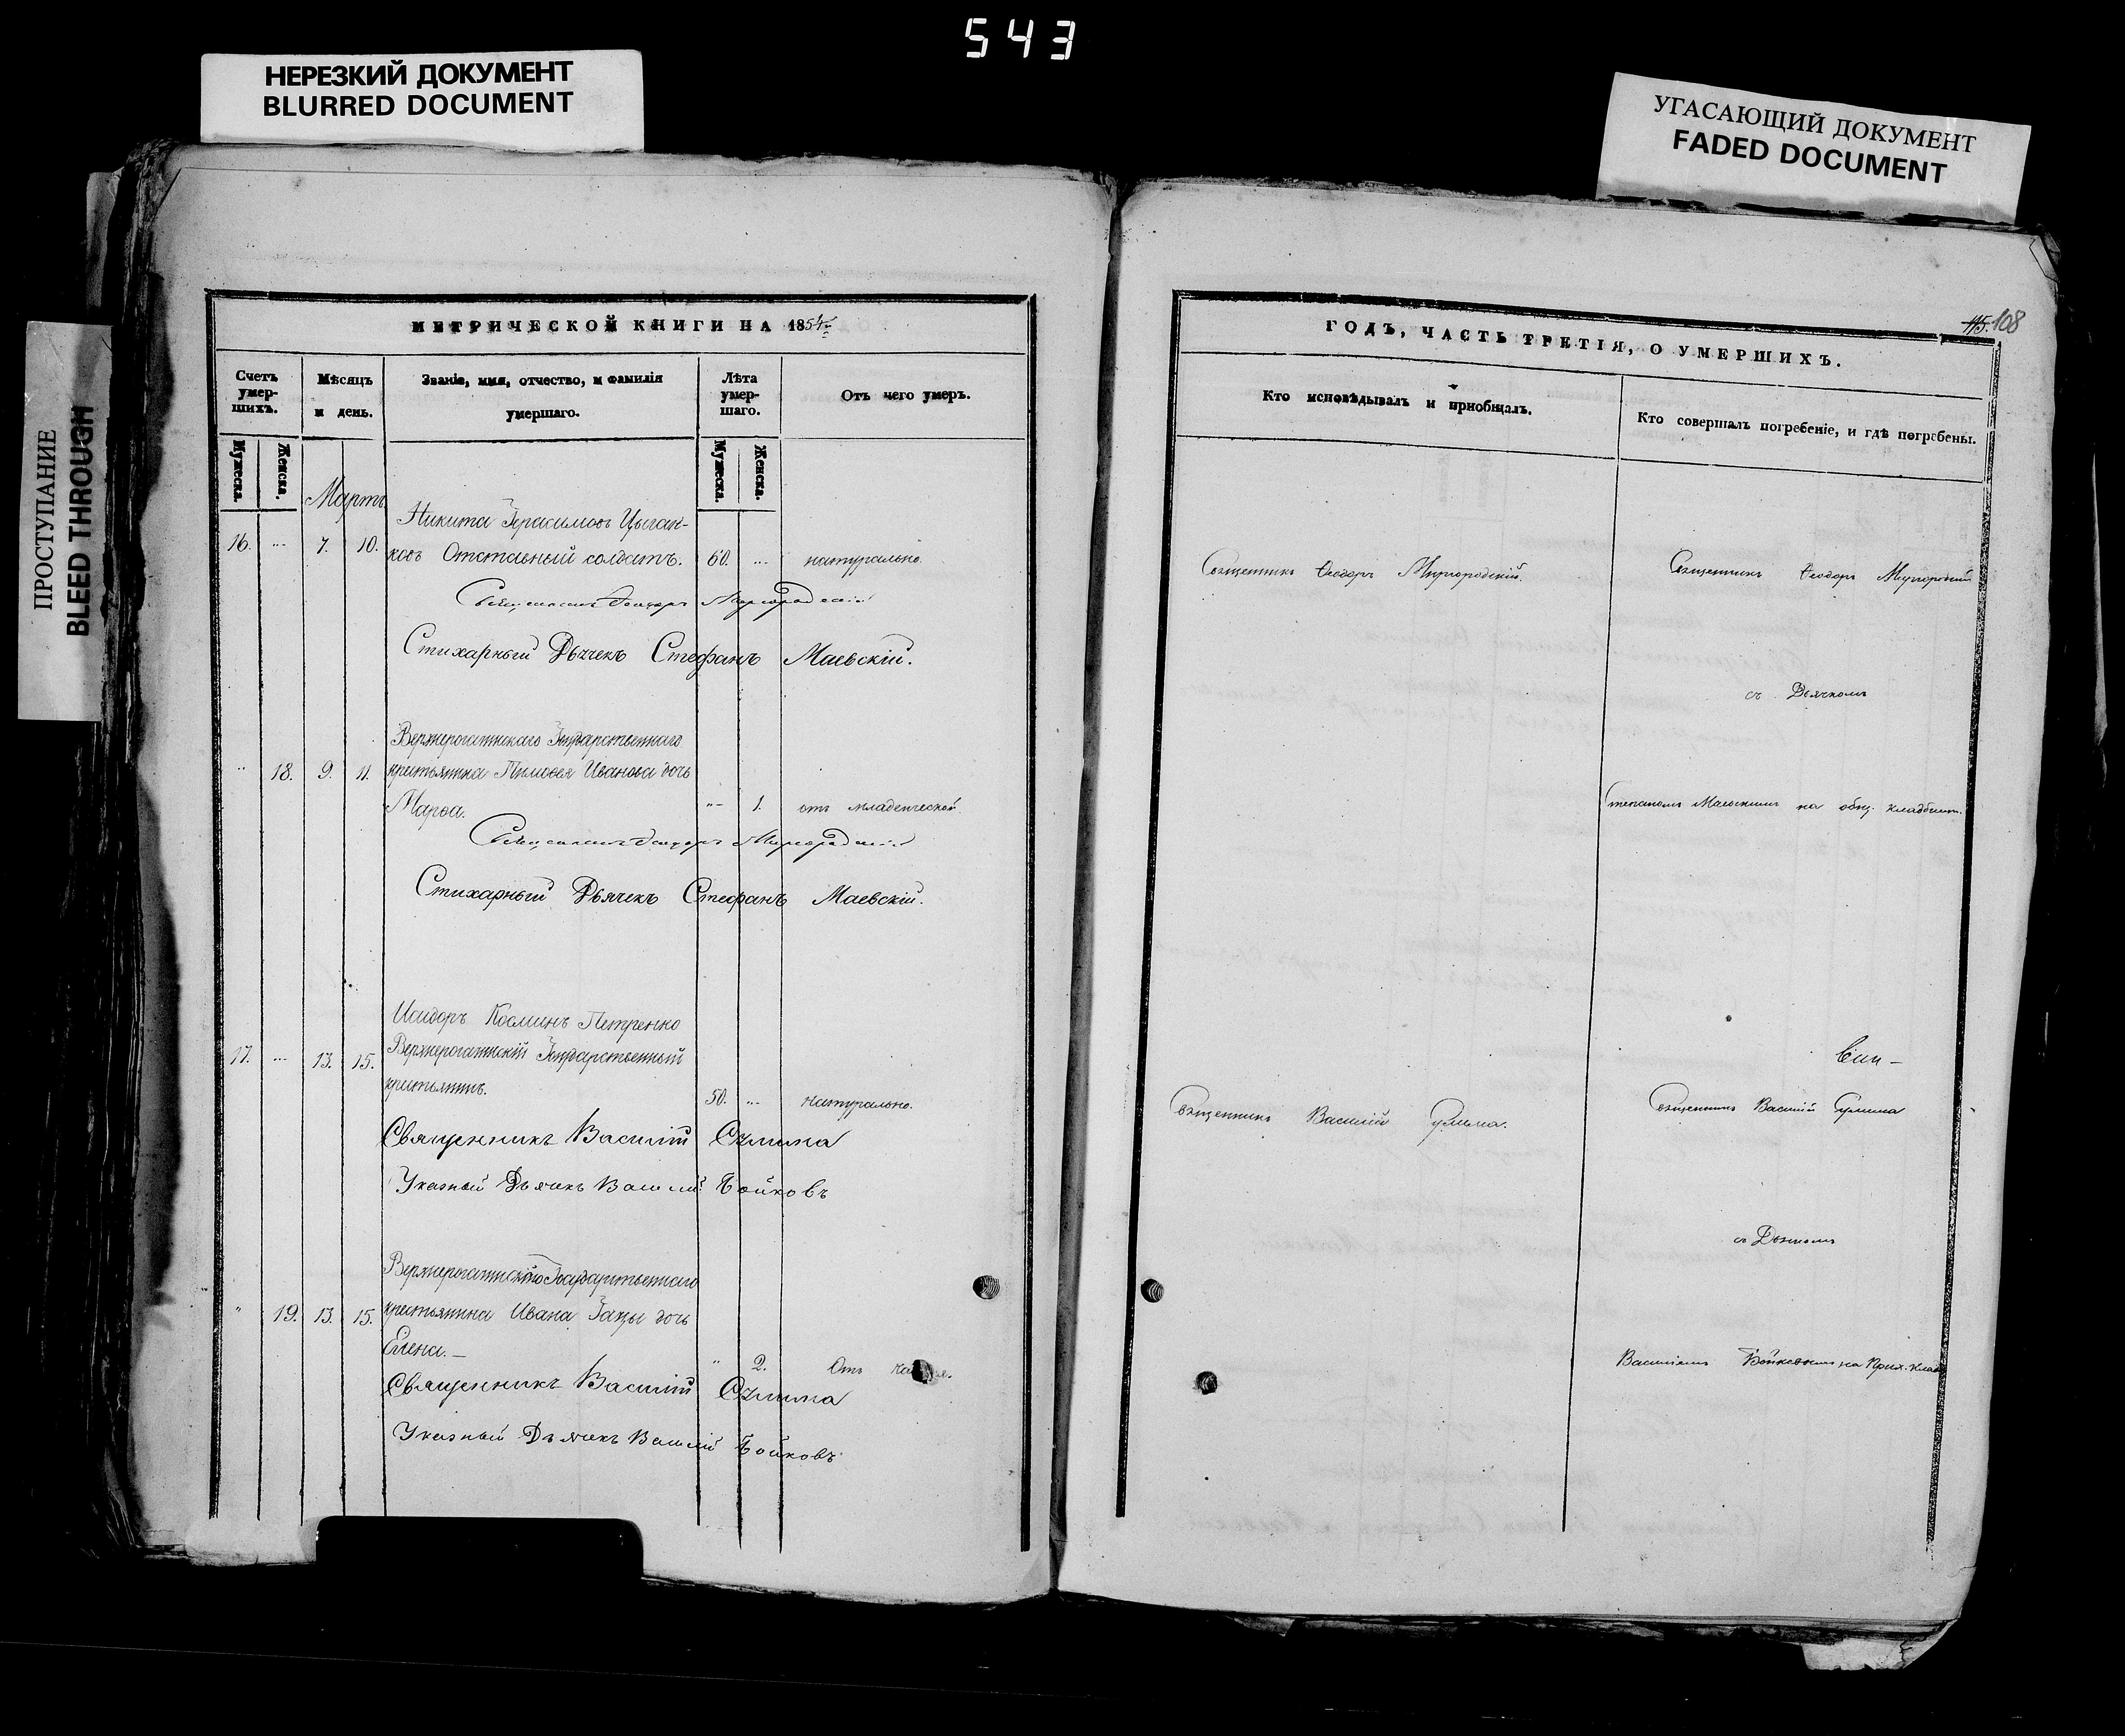 543
НЕРЕЗКИЙ ДОКУМЕНТ
BLURRED DOCUMENT
УГАСАЮЩИЙ ДОКУМЕНТ
FADED DOCUMENT
ПРОСТУПАНИЕ
BLEED THROUGH
МЕТРИЧЕСКОЙ КНИГИ НА 1854
Счетъ умер-шихъ.
Мѣсяцъ и день.
Званіе, имя, отчество, и фамилія умершаго.
Лѣта умер-шаго.
Отъ чего умеръ.
Мужеска. Женска. Мужеска. Женска.
Мартъ
Никита Герасимовъ Цыган-
16. ... 7. 10. ковъ Отставный солдатъ. 60. ... натурально.
Священникъ Ѳеодоръ Миргородскій
Стихарный Дьячекъ Стефанъ Маевскій.
Верхнерогатикскаго Государственнаго
" 18. 9. 11. крестьянина Тимоѳея Иванова дочь
Марѳа. "- 1. отъ младенческой
Священникъ Ѳеодоръ Миргородскій
Стихарный Дьячекъ Стефанъ Маевскій.
Исидоръ Косминъ Петренко
17. ... 13. 15. Верхнерогатикскій Государственный
крестьянинъ. 50. ... натурально.
Священникъ Василій Сулима
Указный Дьячекъ Василій Бойковъ
Государственнаго
" 19. 13. 15. крестьянина Ивана дочь
Елена.— " 2. Отъ
Священникъ Василій Сулима
Указный Дьячекъ Василій Бойковъ
115. 108
ГОДЪ, ЧАСТЬ ТРЕТІЯ, О УМЕРШИХЪ.
Кто исповѣдывалъ и пріобщалъ.
Кто совершалъ погребеніе, и гдѣ погребены.
Священникъ Ѳеодоръ Миргородскій.
Священникъ Ѳеодоръ Миргородскій
съ Дьячкомъ
Степаномъ Маевскимъ на общ. кладбищѣ.
Священникъ Василій Сулима.
Священникъ Василій Сулима
съ Дьячкомъ
Василіемъ Бойковымъ на Прих. клад